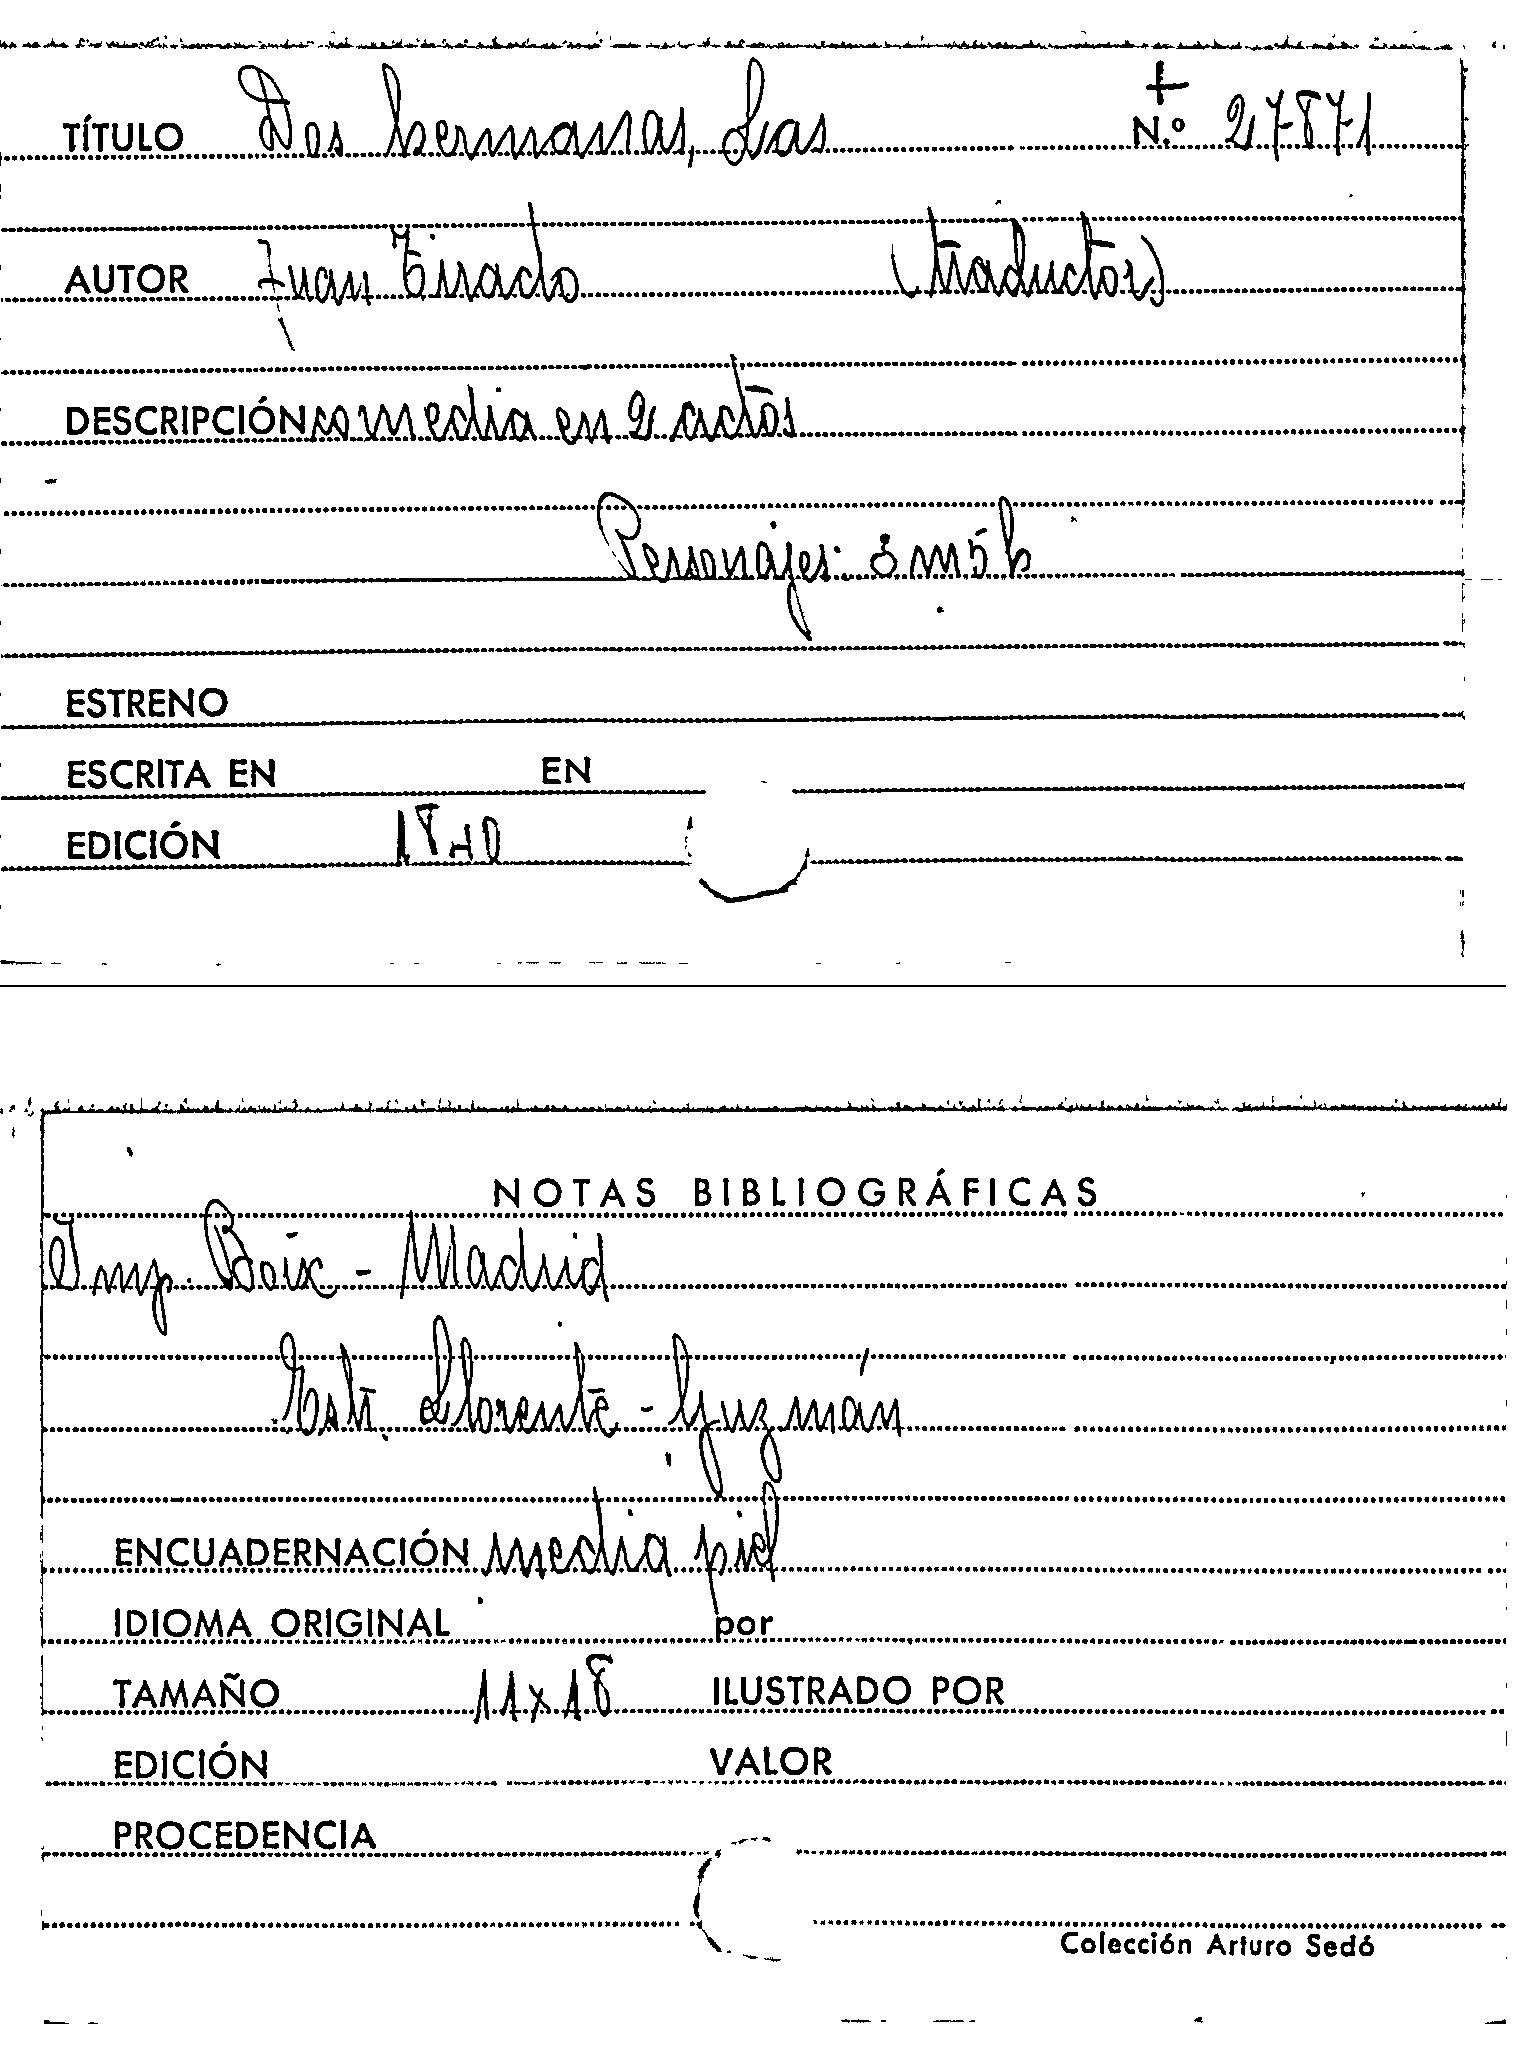 TÍTULO Dos hermanas, Las + N.º 27871
AUTOR Juan Tirado (traductor)
DESCRIPCIÓN comedia en 2 actos
Personajes: 3 m 5 h
ESTRENO
ESCRITA EN EN
EDICIÓN 1840
NOTAS BIBLIOGRÁFICAS
Imp. Boix - Madrid
Est. Llorente - Guzmán
ENCUADERNACIÓN media piel
IDIOMA ORIGINAL por
TAMAÑO 11x18 ILUSTRADO POR
EDICIÓN VALOR
PROCEDENCIA
Colección Arturo Sedó